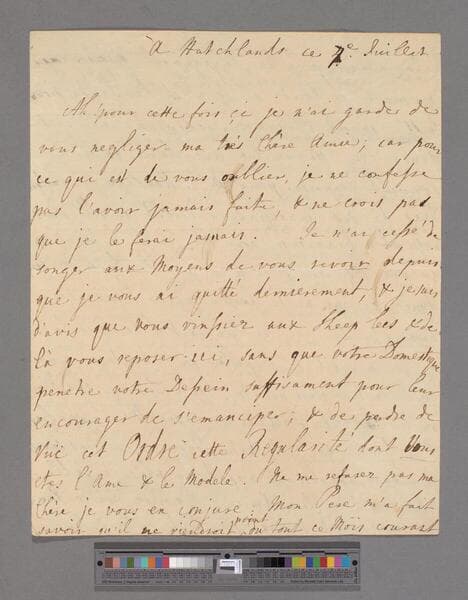 A Hatchlands ce 7.e Juillet
Ah! pour cette fois çi je n'ai garde de
vous negliger ma très Chère Amie; car pour
ce qui est de vous oublier, je ne confesse
pas l'avoir jamais faite, & ne crois pas
que je le ferai jamais. Je n'ai cessé de
songer aux Moyens de vous revoir depuis
que je vous ai quitté dernierement, & je suis
d'avis que vous vinssiez aux Sheep lees & de
là vous reposer ici, sans que votre Domestique
penetre votre Dessein suffisament pour leur
encourager de s'emanciper; & de perdre de
vüe cet Ordre cette Regularité dont Vous
etes l'Ame & le Modele. Ne me refusez pas ma
Chère je vous en conjure. Mon Pere m'a fait
savoir qu'il ne viendroit point du tout ce Mois courant